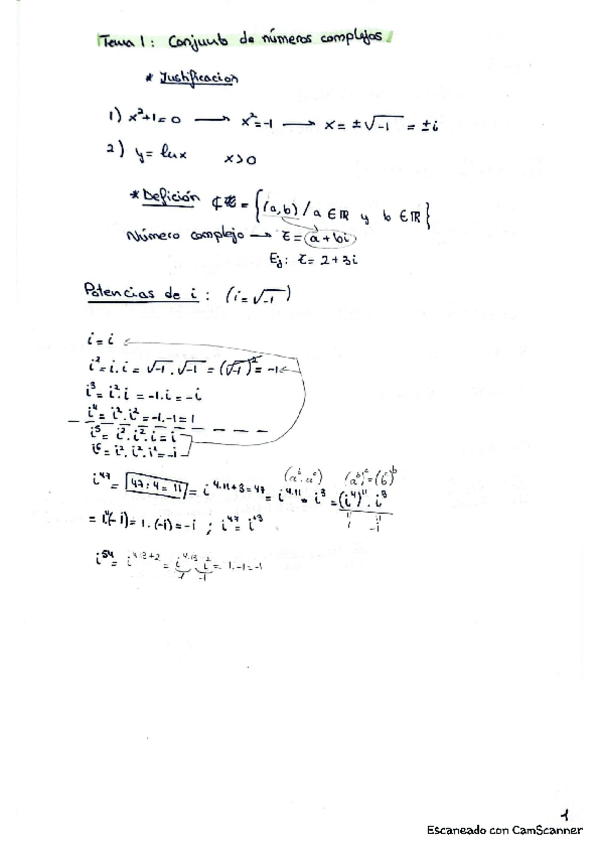 Tema 1: Conjunto de números complejos.
* Justificacion
1) x²+1=0 → x²=-1 → x = ±√-1 = ±i
2) y = lnx x>0
* Defición ₵ = {(a,b) / a ∈ IR y b ∈ IR}
Número complejo → z = a + bi
Ej: z = 2+3i
Potencias de i : (i=√-1)
i = i
i² = i.i = √-1 . √-1 = (√-1)² = -1
i³ = i².i = -1.i = -i
i⁴ = i².i² = -1.-1 = 1
i⁵ = i².i².i = i
i⁶ = i².i².i² = -i
(aᵇ.aᶜ) (aᵇ)ᶜ=(6)ᵇ
i⁴⁷ = 47:4 = 11 = i^4.11+3=47 = i^4.11 . i³ = (i⁴)¹¹ . i³
1 -i
= 1.(-i) = 1.(-i) = -i ; i⁴⁷ = i⁺³
i⁵⁴ = i^4.13+2 = i^4.13 . i² = 1.-1=-1
1 -1
1
Escaneado con CamScanner